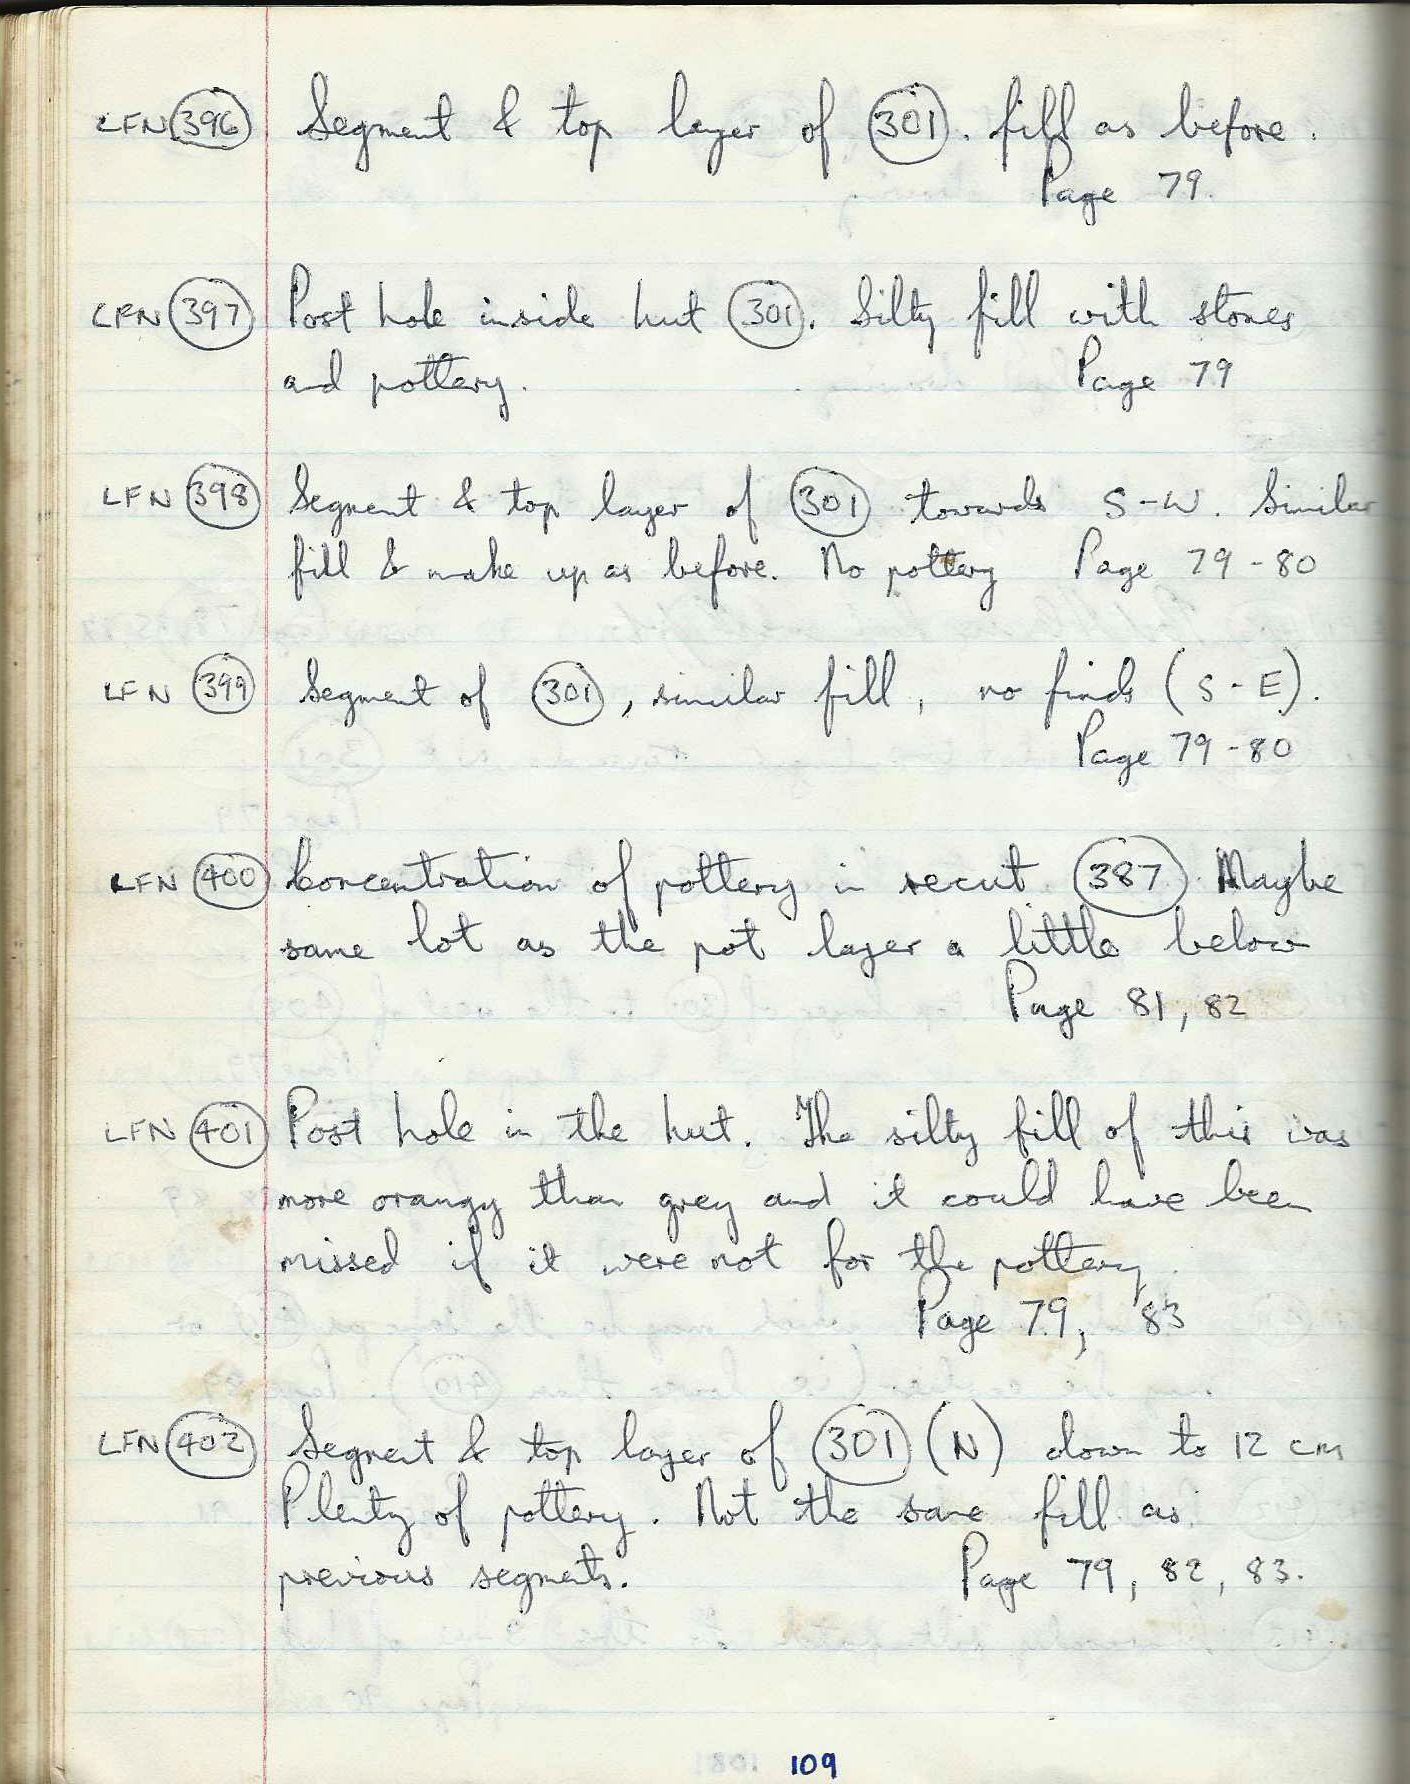 LFN 396 Segment & top layer of 301. fill as before.
Page 79.
LFN 397 Post hole inside hut 301. Silty fill with stones
and pottery. Page 79
LFN 398 Segment & top layer of 301 towards S-W. Similar
fill & make up as before. No pottery Page 79-80
LFN 399 Segment of 301, similar fill, no finds (S-E).
Page 79-80
LFN 400 Concentration of pottery in recut 387. Maybe
same lot as the pot layer a little below
Page 81, 82
LFN 401 Post hole in the hut. The silty fill of this was
more orangy than grey and it could have been
missed if it were not for the pottery.
Page 79, 83
LFN 402 Segment & top layer of 301 (N) down to 12 cm
Plenty of pottery. Not the same fill as
previous segments. Page 79, 82, 83.
109